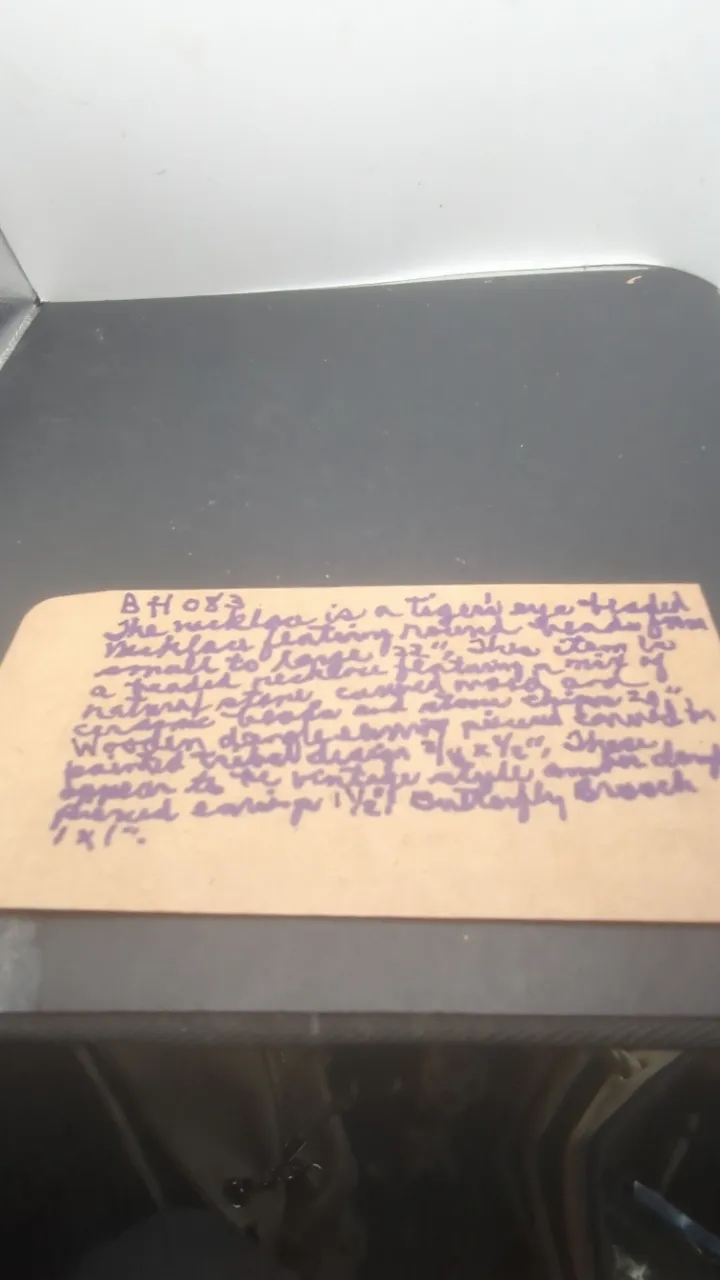 BH 083
The necklace is a Tiger's eye beaded
necklace featuring round beads from
small to large 22". This item is
a beaded necklace featuring a mix of
natural stone carved wood and
ceramic beads and stone chips
Wooden dangle pierced carved in
painted tribal design These
appear to be vintage style
pierced earings 1 1/2" Butterfly Brooch
1 x 1".